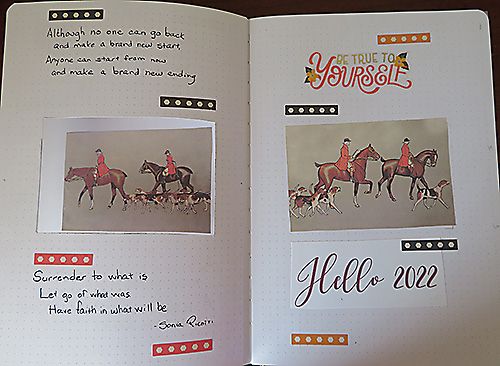 Although no one can go back
and make a brand new start,
Anyone can start from now
and make a brand new ending
Surrender to what is
Let go of what was
Have faith in what will be
- Sonia Ricotti
BE TRUE TO
YOURSELF
Hello 2022